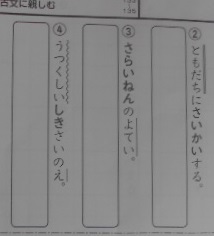 古文に親しむ
② ともだちにさいかいする。
③ さらいねんのよてい。
④ うつくしいしきさいのえ。